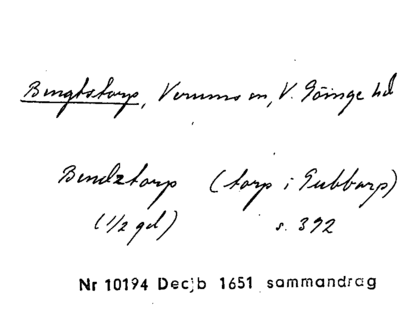 Bengtstorp, Verums sn, V. Göinge hd
Bendztorp (torp i Gubbarp)
(1/2 gd) s. 392
Nr 10194 Decjb 1651 sammandrag